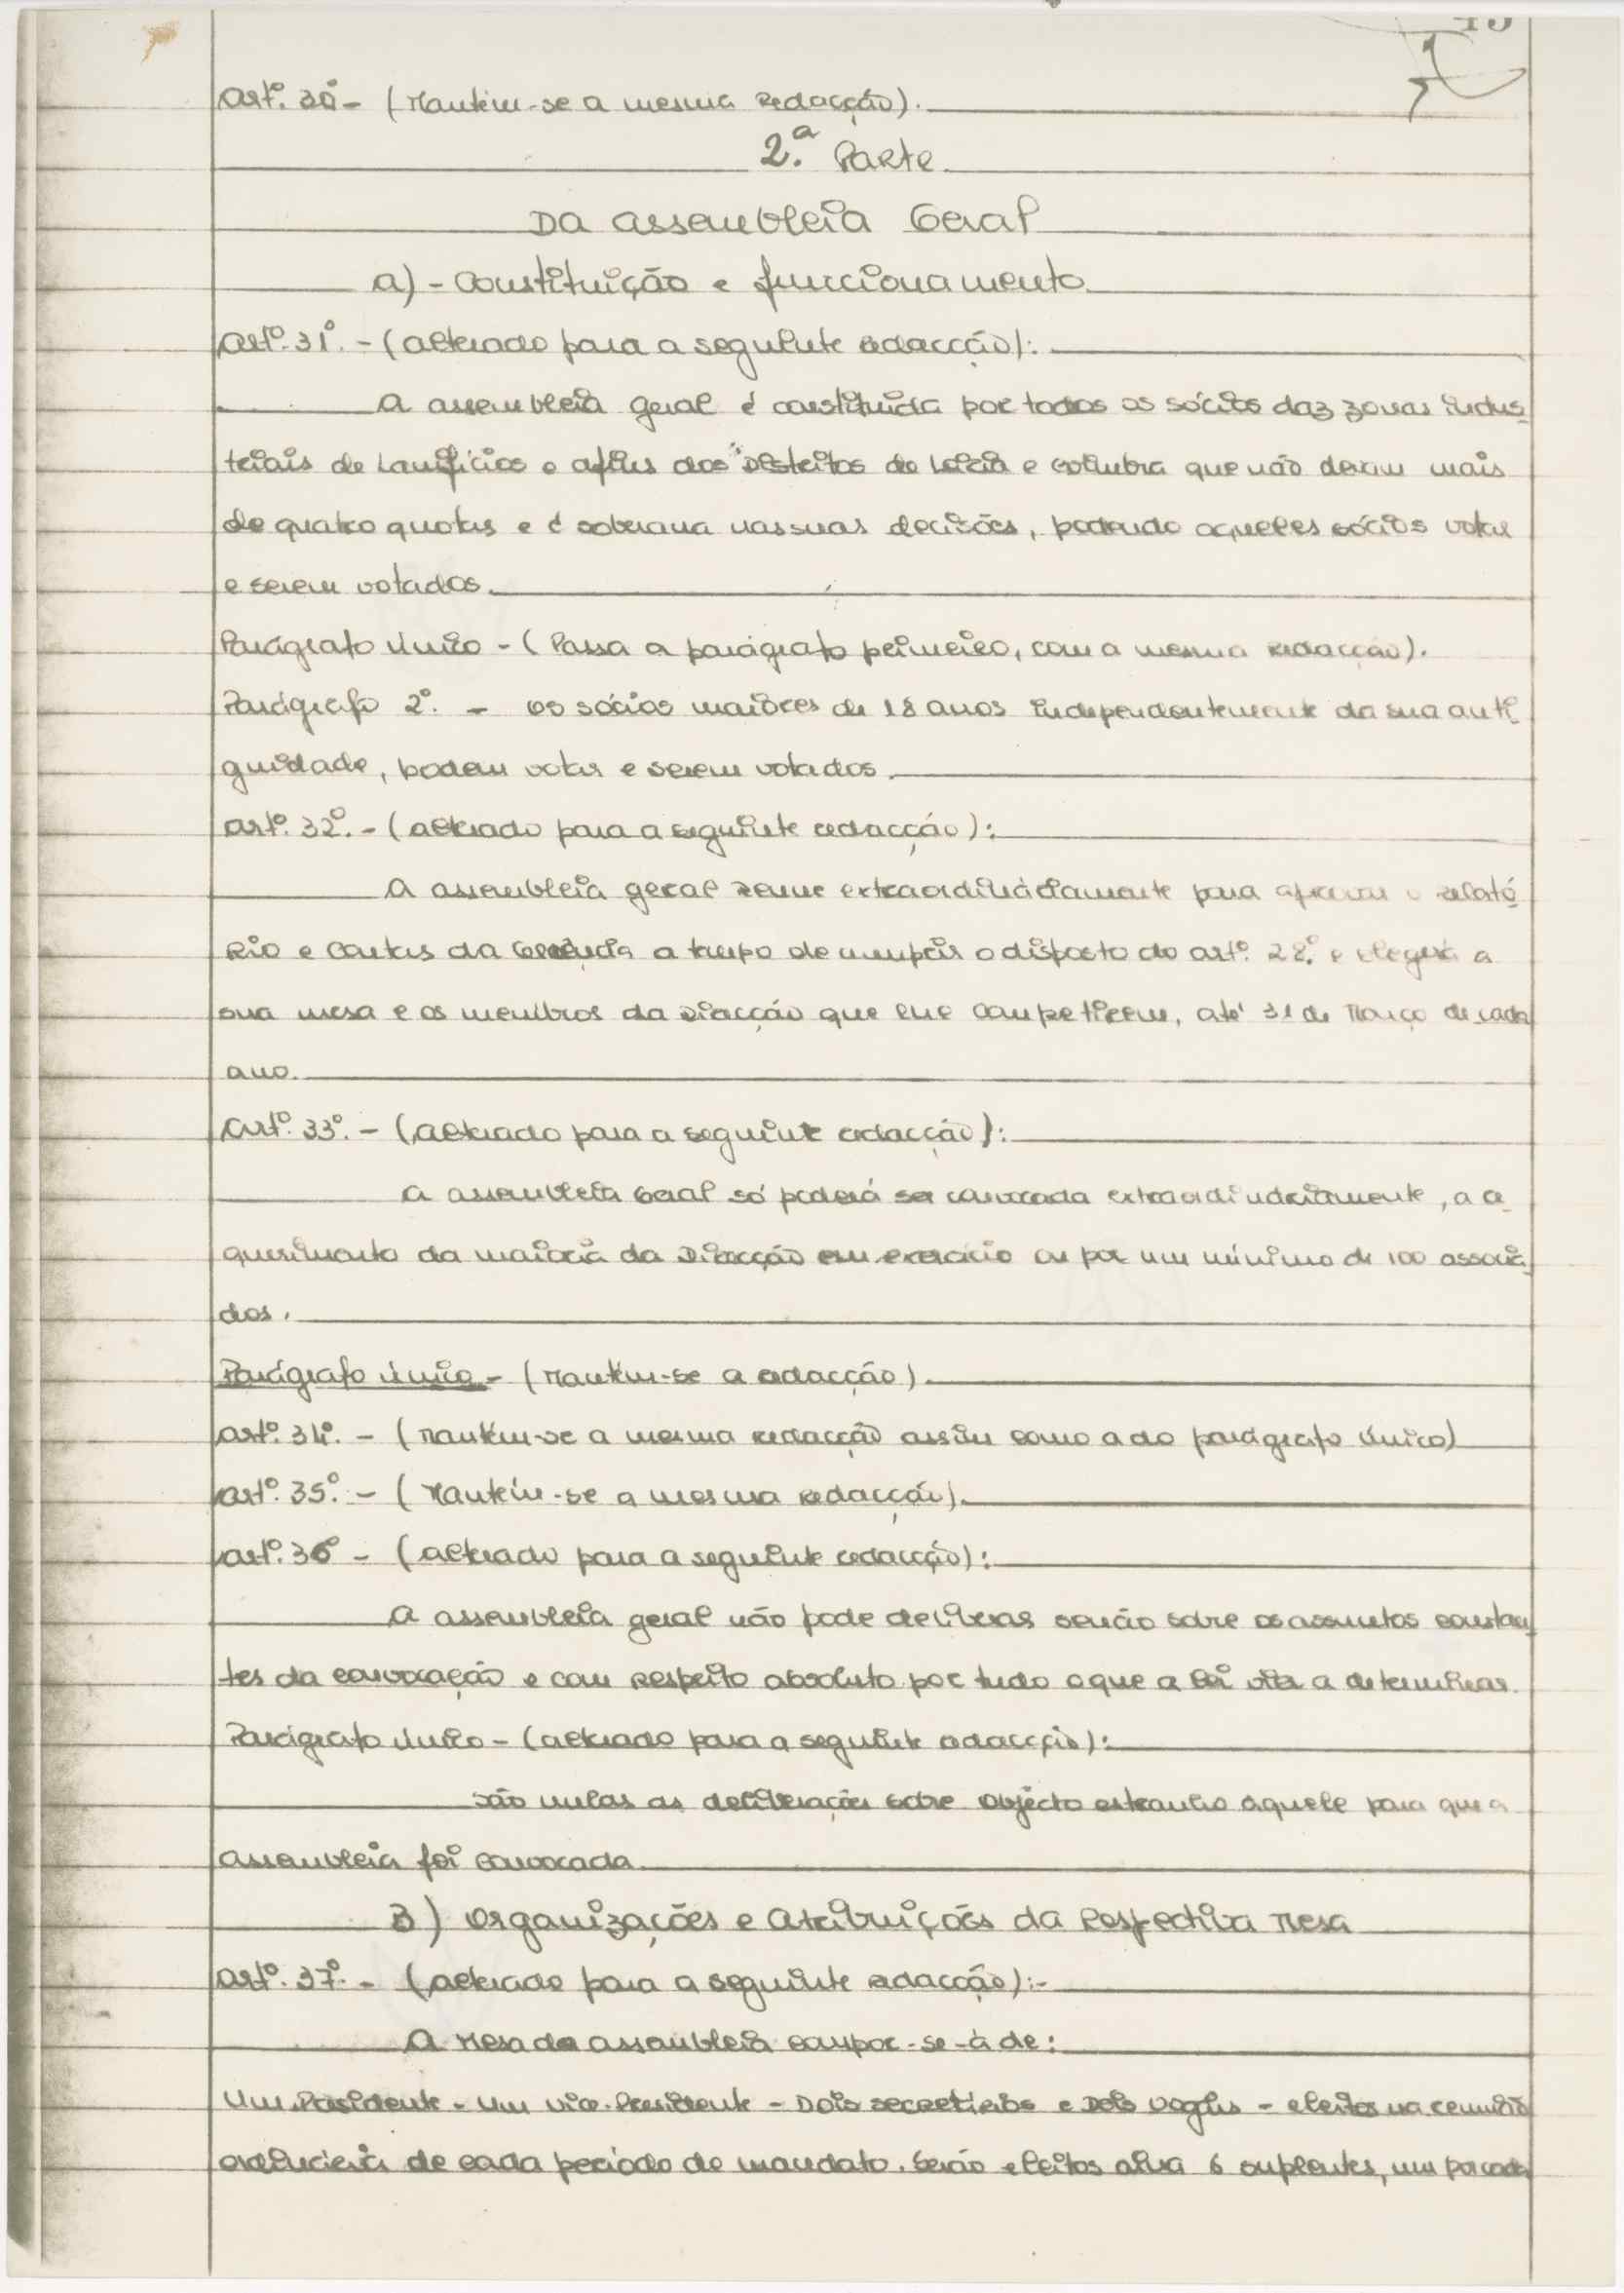 Artº. 30º - (Mantém-se a mesma redacção).
2.ª Parte
Da Assembleia Geral
a) - Constituição e funcionamento
Artº. 31º. - (alterado para a seguinte redacção):
A assembleia geral é constituída por todos os sócios das zonas indus
triais de Lanifícios e afins dos Distritos de Leiria e Coimbra que não devam mais
de quatro quotas e é soberana nas suas decisões, podendo aqueles sócios votar
e serem votados.
Parágrafo Único - (Passa a parágrafo primeiro, com a mesma redacção).
Parágrafo 2º. - Os sócios maiores de 18 anos independentemente da sua anti
guidade, podem votar e serem votados.
Artº. 32º. - (alterado para a seguinte redacção):
A assembleia geral reune extraordináriamente para aprovar o relató
rio e contas da Gerência a tempo de cumprir o disposto do artº. 28º. e elegerá a
sua mesa e os membros da Direcção que lhe competirem, até 31 de Março de cada
ano.
Artº. 33º. - (alterado para a seguinte redacção):
A assembleia Geral só poderá ser convocada extraordináriamente, a re
querimento da maioria da Direcção em exercício ou por um mínimo de 100 associa
dos.
Parágrafo único - (Mantém-se a redacção).
Artº. 34º. - (Mantém-se a mesma redacção assim como a do parágrafo único)
Artº. 35º. - (Mantém-se a mesma redacção).
Artº. 36º - (alterado para a seguinte redacção):
A assembleia geral não pode deliberar senão sobre os assuntos constan
tes da convocação e com respeito absoluto por tudo o que a lei vier a determinar.
Parágrafo único - (alterado para a seguinte redacção):
São nulas as deliberações sobre objecto estranho àquele para que a
assembleia foi convocada.
B) Organizações e Atribuições da Respectiva Mesa
Artº. 37º. - (alterado para a seguinte redacção):-
A Mesa da assembleia compor-se-á de:
Um Presidente - Um vice-Presidente - Dois secretários e Dois Vogais - eleitos na reunião
ordinária de cada período de mandato. Serão eleitos 6 suplentes, um por cada